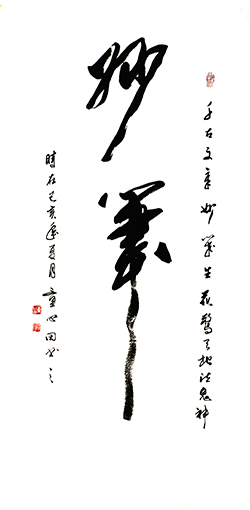 千古文章妙筆生花驚天地泣鬼神
妙筆
時在己亥年夏月童心田書之